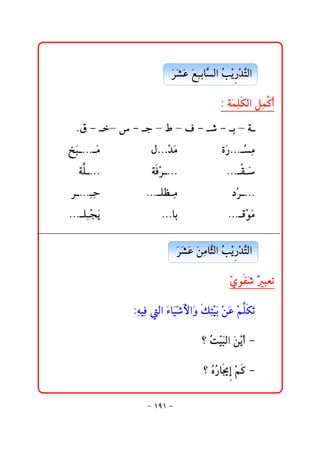 التَّدْرِيْبُ السَّابِعَ عَشَرَ
أَكْمِلِ الكَلِمَةَ :
ـة – بـ - شـ - ف – ط – جـ - س –خـ - ق.
مِسْـ...رَة مَدْ...ل مَـ...ـبَخ
سَـقْـ... ...ـرْفَة ...ـلَّة
...ـرْد مِـظلـ... حِبْـ...ـر
مَوْقـ... با... يَجْـلـ...
التَّدْرِيْبُ الثَّامِنَ عَشَرَ
تعبيرٌ شَفَوِيّ
تَكَلَّمْ عَنْ بَيْتِكَ وَالأَشْيَاءَ التِي فِيهِ:
- أَيْنَ البَيْتُ ؟
- كَمْ إِيجَارُهُ ؟
- ١٩١ -